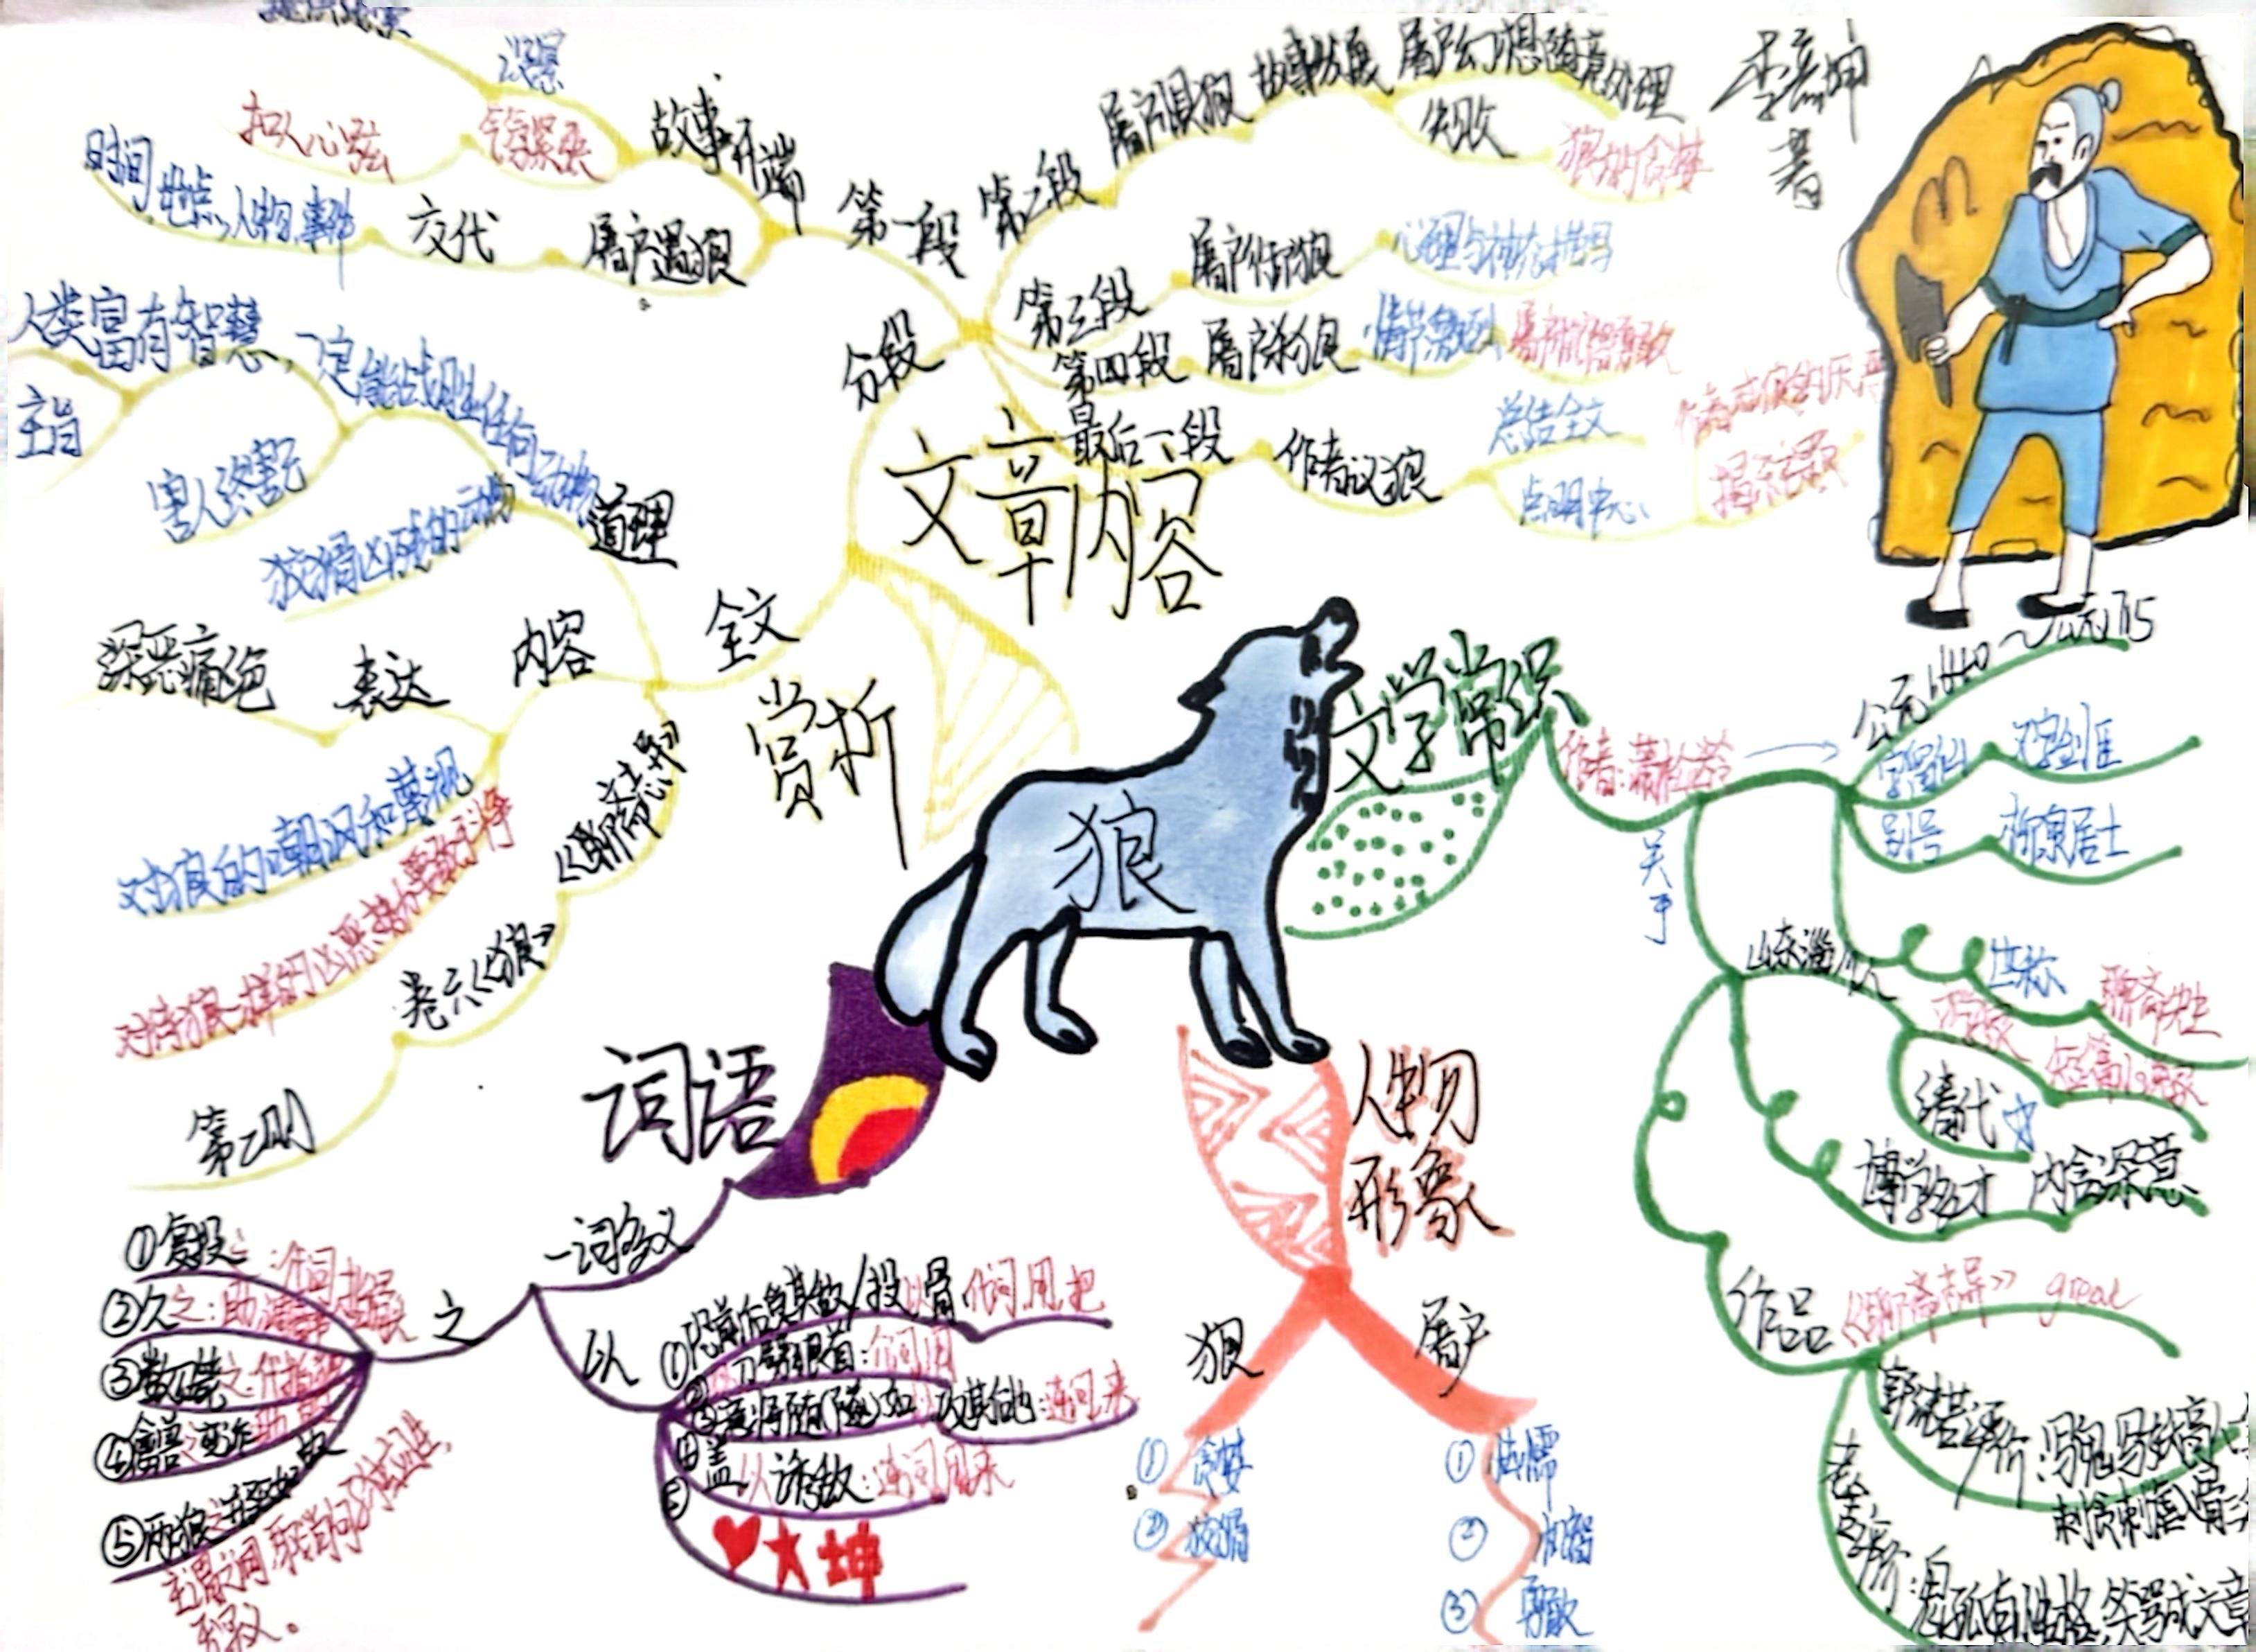 狼
文章内容
分段
第一段
故事开端
管紧张
扣人心弦
屠户遇狼
交代
时间、地点、人物、事件
第二段
屠户惧狼
故事发展
屠户幻想随意处理
失败
狼的贪婪
第三段
屠户御狼
心理与神态描写
第四段
屠户杀狼
情节激烈
屠户机智勇敢
最后一段
作者议狼
总结全文
点明中心
作者对狼的厌恶
揭示主题
著
赏析
全文
道理
人类富有智慧,一定能战胜任何动物
主旨
害人终害己
狡猾凶残的动物
内容
表达
深恶痛绝
对狼的嘲讽和蔑视
对待狼一样的凶恶势力要敢于斗争
《聊斋志异》
卷六《狼》
第二则
文学常识
作者:蒲松龄
关于
公元1640~公元1715
字留仙
又字剑臣
别号
柳泉居士
世称
聊斋先生
山东淄川人
清代
文
短篇小说家
博学多才
内含深意
作品
《聊斋志异》 great
郭沫若评价:写鬼写妖高人
刺贪刺虐入骨三分
老舍评价:鬼狐有性格,笑骂成文章
人物
形象
狼
①贪婪
②狡猾
屠户
①怯懦
②机智
③勇敢
词语
一词多义
之
①复投之:代词,指狼
②久之:助词
③
④禽兽之变诈
⑤两狼之并驱如故
主谓之间,取消句子独立性,
无实义。
以
①恐前后受其敌/投以骨:介词,用,把
②刀劈狼首:介词,用
③意将隧入以攻其后也:连词,来
④盖以诱敌:连词,用来
⑤
大坤